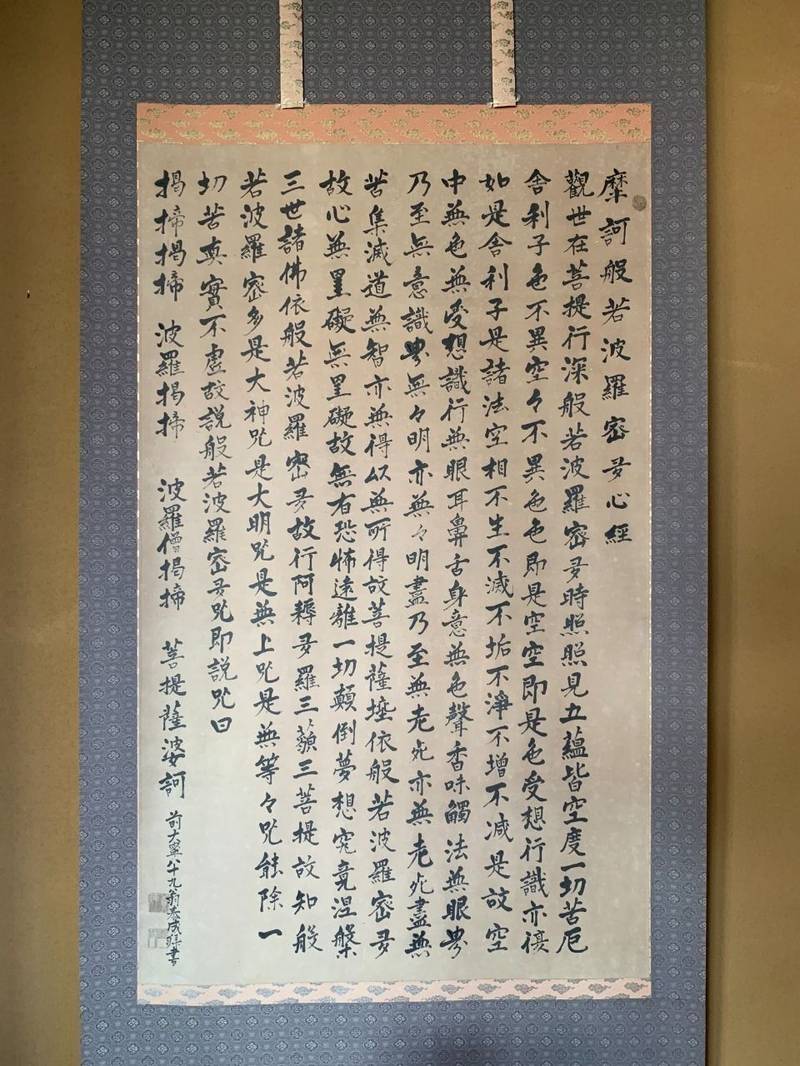 摩訶般若波羅密多心經
觀世在菩提行深般若波羅密多時照照見五蘊皆空度一切苦厄
舍利子色不異空々不異色色即是空空即是色受想行識亦復
如是舍利子是諸法空相不生不滅不垢不淨不增不減是故空
中無色無受想識行無眼耳鼻舌身意無色聲香味觸法無眼界
乃至無意識界無々明亦無々明盡乃至無老死亦無老死盡無
苦集滅道無智亦無得以無所得故菩提薩埵依般若波羅密多
故心無罣礙無罣礙故無有恐怖遠離一切顛倒夢想究竟涅槃
三世諸佛依般若波羅密多故行阿耨多羅三藐三菩提故知般
若波羅密多是大神咒是大明咒是無上咒是無等々咒能除一
切苦真實不虛故說般若波羅密多咒即說咒曰
揭揥揭揥 波羅揭揥 波羅僧揭揥 菩提薩婆訶
前大寧八十九翁泰成拜書